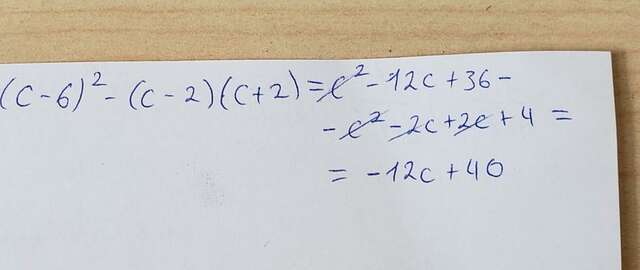 (c-6)² - (c-2)(c+2) = c² - 12c + 36 -
- c² - 2c + 2c + 4 =
= -12c + 40